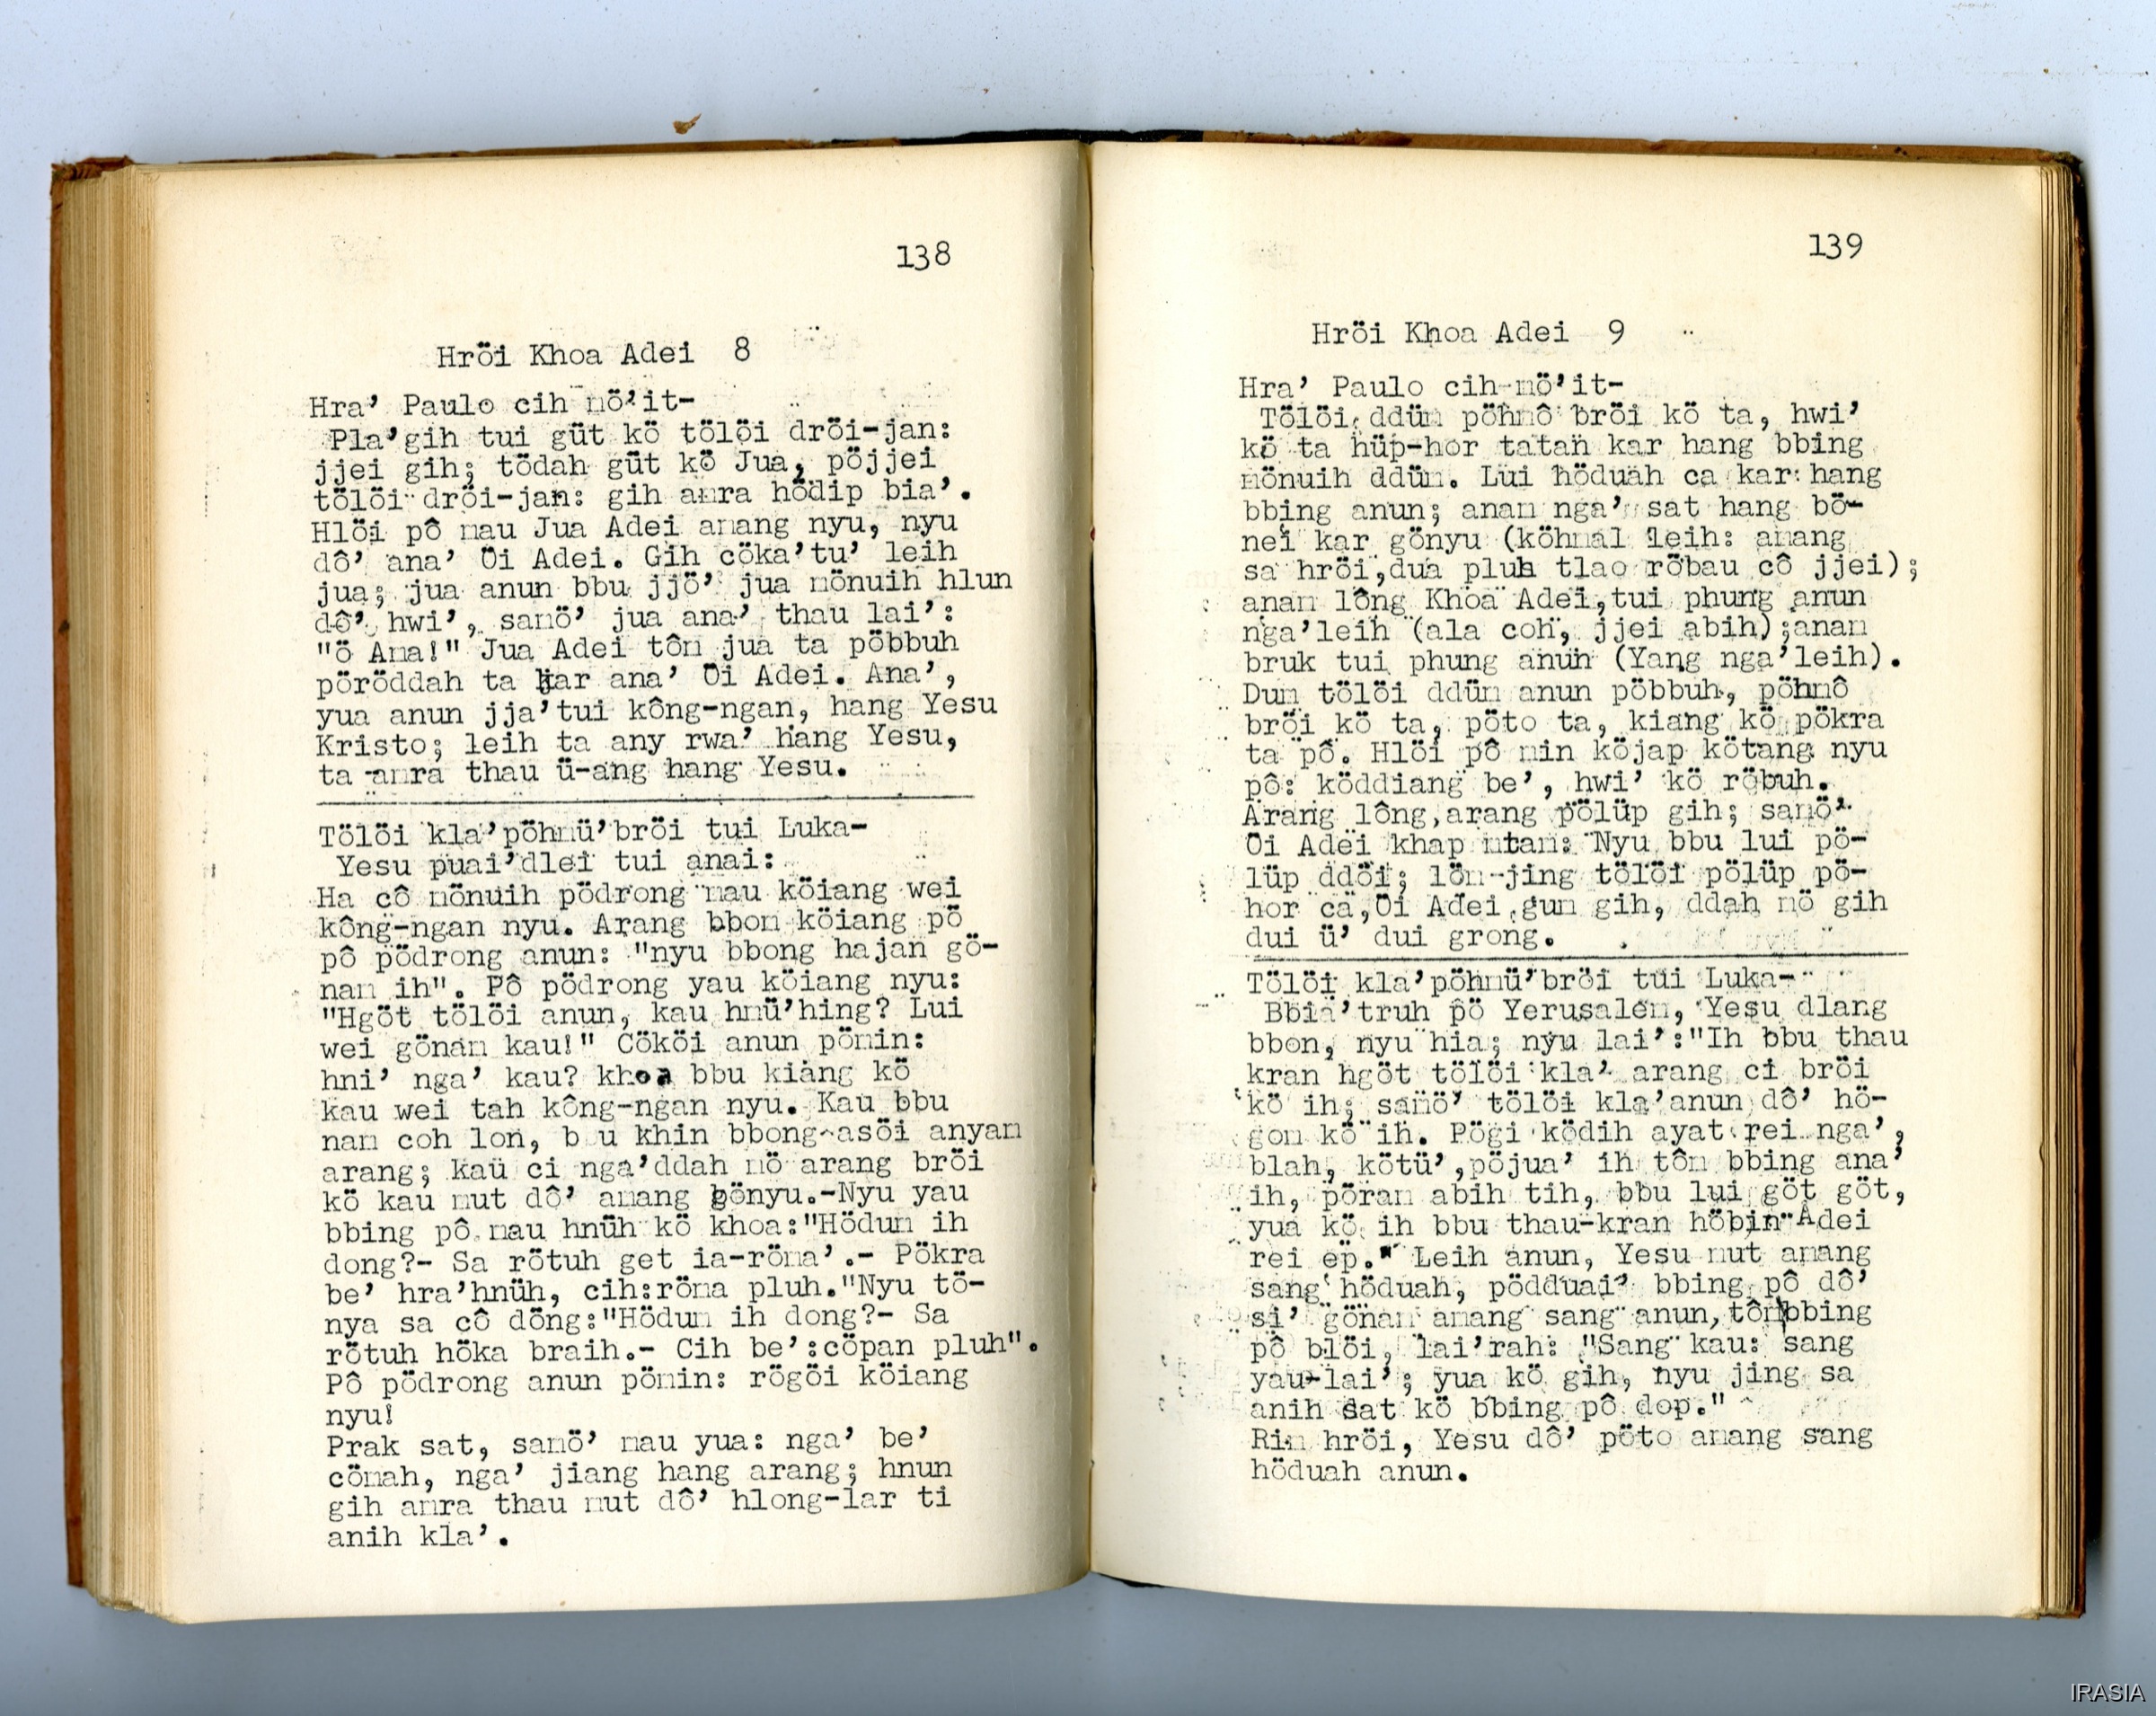 138
Hröi Khoa Adei 8
Hra' Paulo cih mö'it-
Pla'gih tui güt kö tölöi dröi-jan:
jjei gih; tödah güt kö Jua, pöjjei
tölöi dröi-jan: gih amra hödip bia'.
Hlöi pô mau Jua Adei amang nyu, nyu
dô' ana' Öi Adei. Gih cöka'tu' leih
jua; jua anun bbu jjö' jua mönuih hlun
dô', hwi', samö' jua ana' thau lai':
"ö Ama!" Jua Adei tôm jua ta pöbbuh
pöröddah ta jar ana' Öi Adei. Ana',
yua anun jja'tui kông-ngan, hang Yesu
Kristo; leih ta amy rwa' hang Yesu,
ta amra thau ü-ang hang Yesu.
Tölöi kla'pöhmü'bröi tui Luka-
Yesu puai'dlei tui anai:
Ha cô mönuih pödrong mau köiang wei
kông-ngan nyu. Arang bbom köiang pö
pô pödrong anun: "nyu bbong hajan gö-
nam ih". Pô pödrong yau köiang nyu:
"Hgöt tölöi anun, kau hmü'hing? Lui
wei gönam kau!" Cököi anun pömin:
hni' nga' kau? khoa bbu kiang kö
kau wei tah kông-ngan nyu. Kau bbu
nam coh lon, b u khin bbong asöi anyam
arang; kau ci nga'ddah mö arang bröi
kö kau mut dô' amang gönyu.-Nyu yau
bbing pô mau hnüh kö khoa:"Hödum ih
dong?- Sa rötuh get ia-röma'.- Pökra
be' hra'hnüh, cih:röma pluh."Nyu tö-
nya sa cô dông:"Hödum ih dong?- Sa
rötuh höka braih.- Cih be':cöpan pluh".
Pô pödrong anun pömin: rögöi köiang
nyu!
Prak sat, samö' mau yua: nga' be'
cömah, nga' jiang hang arang; hnun
gih amra thau mut dô' hlong-lar ti
anih kla'.
139
Hröi Khoa Adei 9
Hra' Paulo cih mö'it-
Tölöi ddüm pöhmô bröi kö ta, hwi'
kö ta hüp-hor tatan kar hang bbing
mönuih ddüm. Lui höduah ca kar hang
bbing anun; anam nga' sat hang bö-
nei kar gönyu (köhnal leih: amang
sa hröi,dua pluh tlao röbau cô jjei);
anam lông Khoa Adei,tui phung anun
nga'leih (ala coh, jjei abih);anam
bruk tui phung anun (Yang nga'leih).
Dum tölöi ddüm anun pöbbuh, pöhmô
bröi kö ta, pöto ta, kiang kö pökra
ta pô. Hlöi pô min köjap kötang nyu
pô: köddiang be', hwi' kö röbuh.
Arang lông,arang pölüp gih; samö'
Öi Adei khap mtam: Nyu bbu lui pö-
lüp ddöi; löm-jing tölöi pölüp pö-
hor ca,Öi Adei gum gih, ddah mö gih
dui ü' dui grong.
Tölöi kla'pöhmü'bröi tui Luka-
Bbia'truh pö Yerusalem, Yesu dlang
bbon, nyu hia; nyu lai':"Ih bbu thau
kran hgöt tölöi kla' arang ci bröi
kö ih; samö' tölöi kla'anun dô' hö-
gom kö ih. Pögi ködih ayat rei nga',
blah, kötü',pöjua' ih tôm bbing ana'
ih, pöram abih tih, bbu lui göt göt,
yua kö ih bbu thau-kran höbin Adei
rei ep." Leih anun, Yesu mut amang
sang höduah, pödduai' bbing pô dô'
si' gönam amang sang anun,tôm bbing
pô blöi, lai'rah: "Sang kau: sang
yau-lai'; yua kö gih, nyu jing sa
anih dat kö bbing pô dop."
Rim hröi, Yesu dô' pöto amang sang
höduah anun.
IRASIA